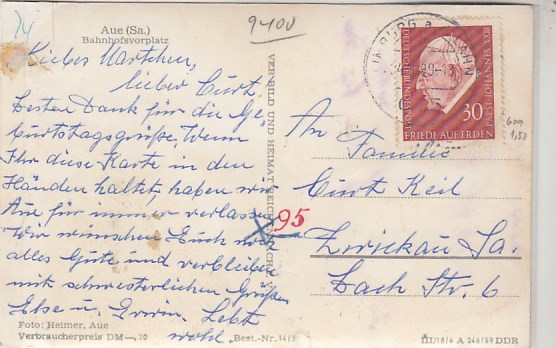 Aue (Sa.)
Bahnhofsvorplatz
9400
Liebes Martchen,
lieber Curt.
Besten Dank für die Ge-
burtstagsgrüße. Wenn
Ihr diese Karte in den
Händen haltet, haben wir
Aue für immer verlassen
Wir wünschen Euch noch
alles Gute und verbleiben
mit schwesterlichen Grüßen
Else u. Erwin. Lebt
wohl
Foto: Heimer, Aue
Verbraucherpreis DM —,70
Best.-Nr. 14/2
VEB BILD UND HEIMAT REICHENBACH
95
DEUTSCHE BUNDESPOST
PAPST JOHANNES XXIII
30
FRIEDE AUF ERDEN
An
Familie
Curt Keil
Zwickau Sa.
Bach Str. 6
III/18/6 A 246/59 DDR